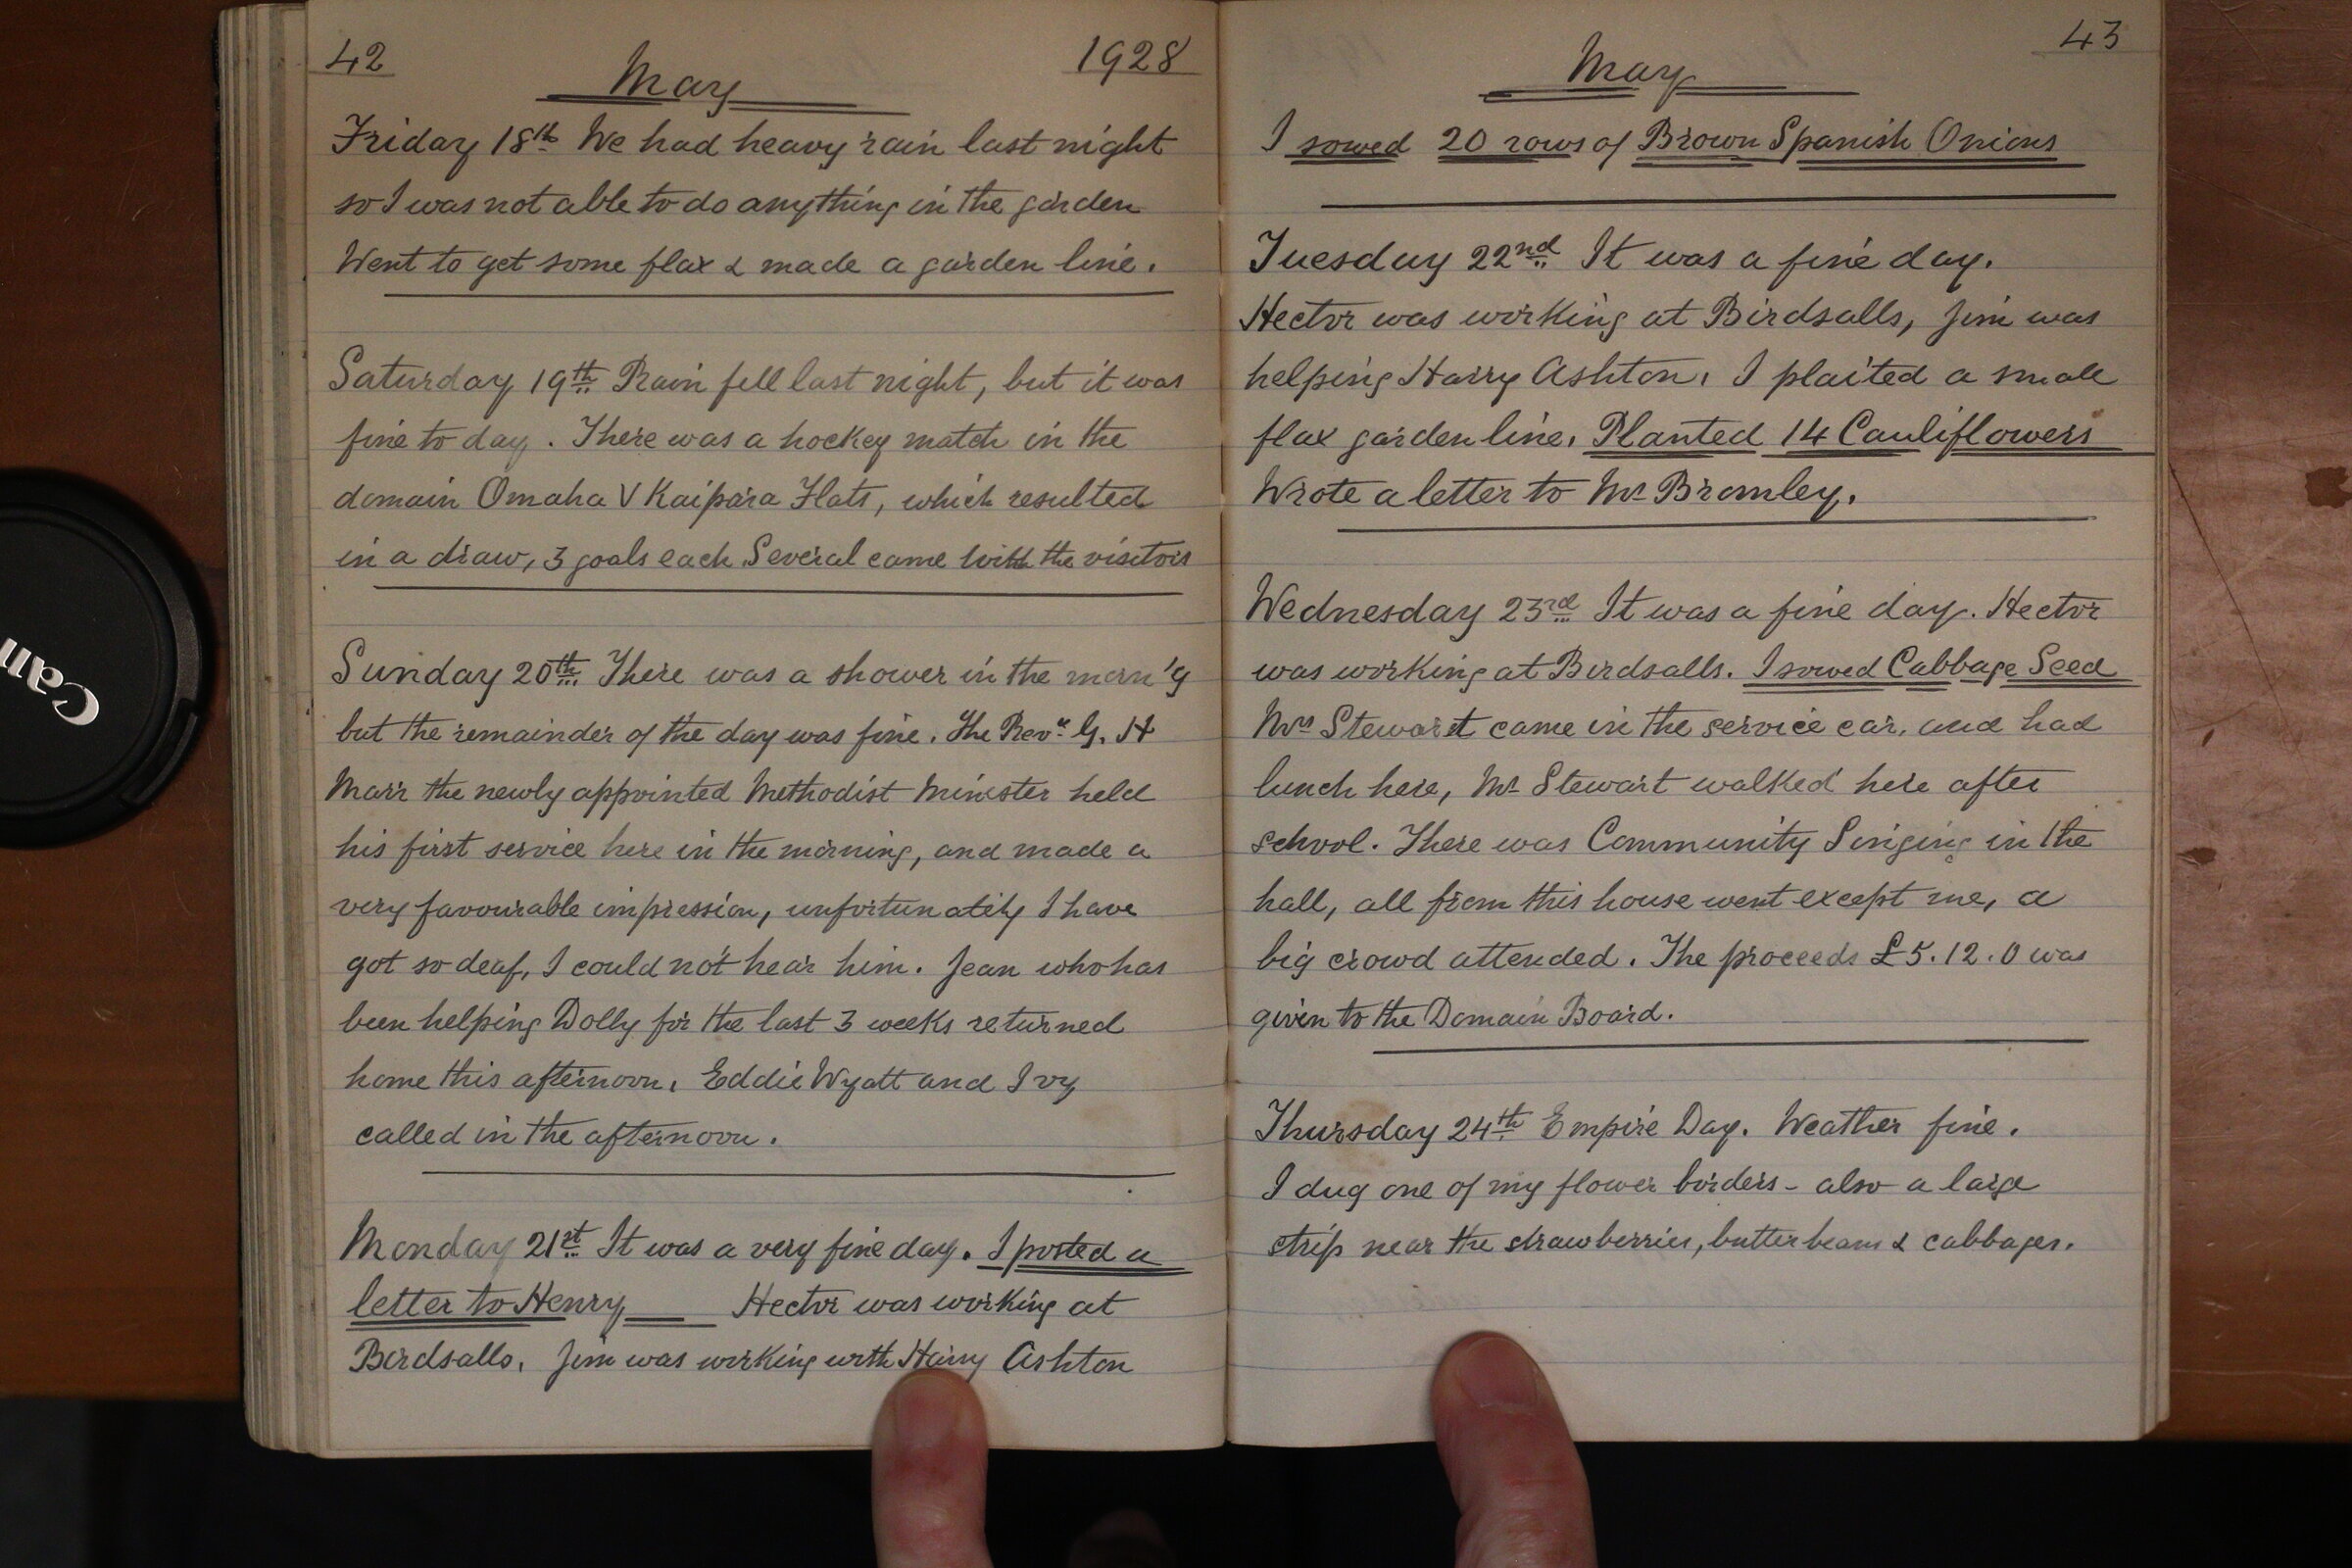 42
1928
May
Friday 18th We had heavy rain last night
so I was not able to do anything in the garden
Went to get some flax & made a garden line.
Saturday 19th Rain fell last night, but it was
fine to day. There was a hockey match in the
domain Omaha V Kaipara Flats, which resulted
in a draw, 3 goals each. Several came with the visitors
Sunday 20th There was a shower in the morn'g
but the remainder of the day was fine. The Revd G. H
Marr the newly appointed Methodist Minister held
his first service here in the morning, and made a
very favourable impression, unfortunately I have
got so deaf, I could not hear him. Jean who has
been helping Dolly for the last 3 weeks returned
home this afternoon. Eddie Wyatt and Ivy
called in the afternoon.
Monday 21st It was a very fine day. I posted a
letter to Henry Hector was working at
Birdsalls. Jim was working with Harry Ashton
43
May
I sowed 20 rows of Brown Spanish Onions
Tuesday 22nd It was a fine day.
Hector was working at Birdsalls, Jim was
helping Harry Ashton. I plaited a small
flax garden line. Planted 14 Cauliflowers
Wrote a letter to Mr Bromley.
Wednesday 23rd It was a fine day. Hector
was working at Birdsalls. I sowed Cabbage Seed
Mrs Stewart came in the service car, and had
lunch here, Mr Stewart walked here after
school. There was Community Singing in the
hall, all from this house went except me, a
big crowd attended. The proceeds £5.12.0 was
given to the Domain Board.
Thursday 24th Empire Day. Weather fine.
I dug one of my flower borders - also a large
strip near the strawberries, butter beans & cabbages.
Can